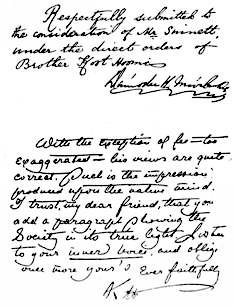 Respectfully submitted to
the consideration of Mr. Sinnett,
under the direct orders of
Brother Koot Hoomi
Damodar K. Mavalankar
With the exception of fee — too
exaggerated — his views are quite
correct. Such is the impression
produced upon the native mind.
I trust, my dear friend, that you
add a paragraph showing the
Society in its true light. Listen
to your inner voice, and oblige
once more yours' Ever faithfully
K H